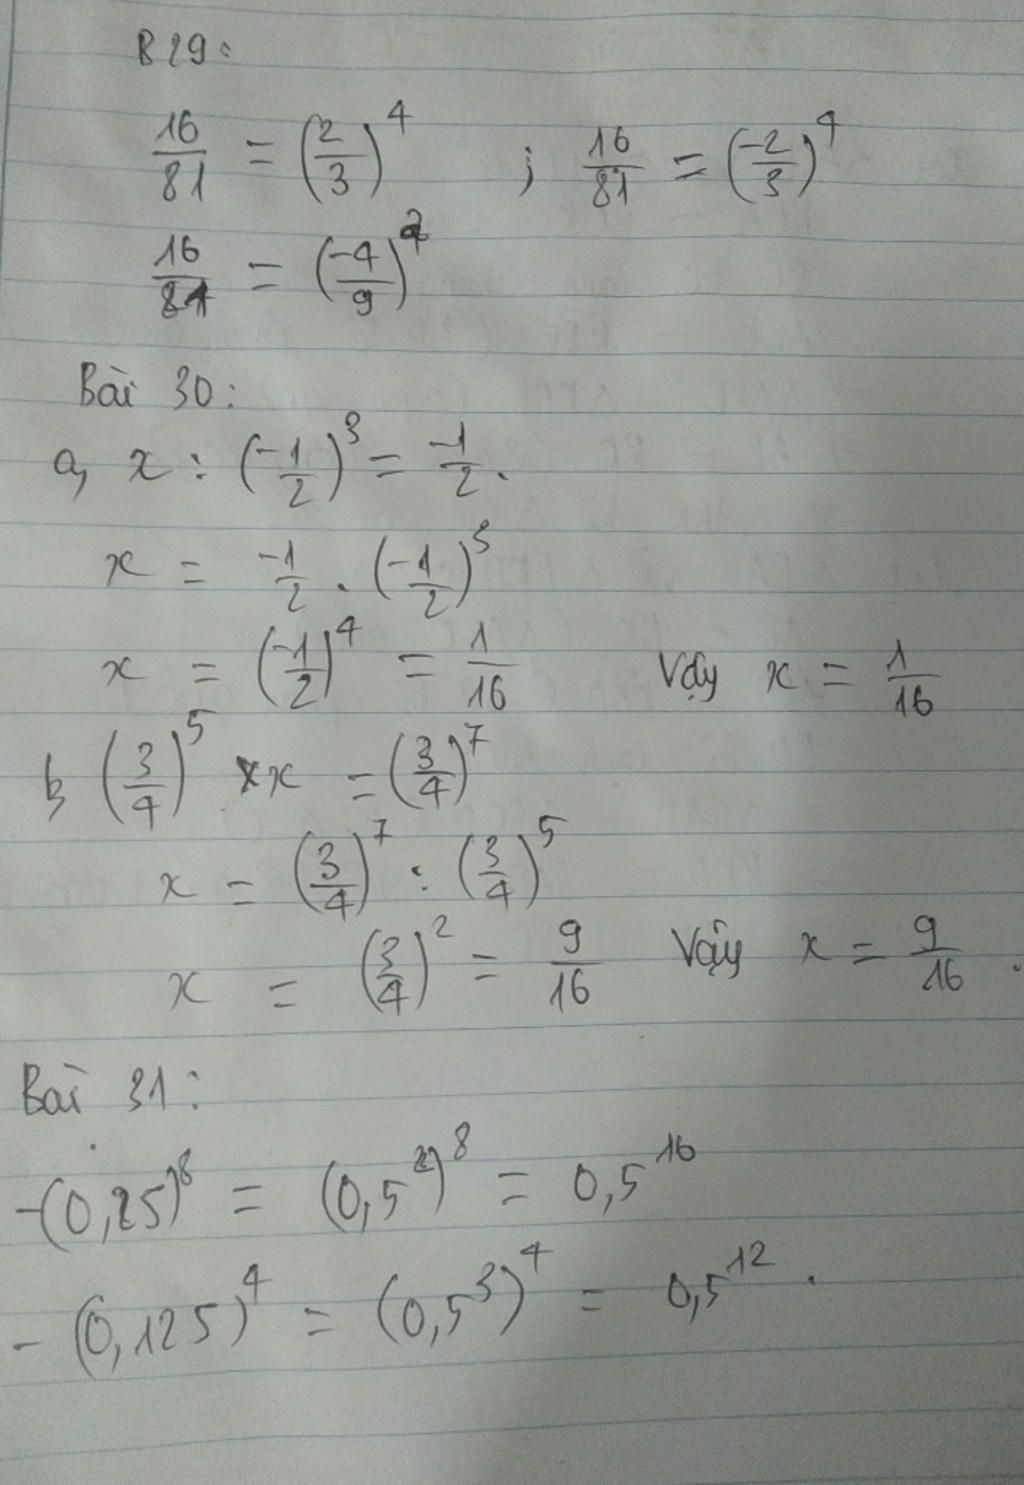 B29:
16/81 = (2/3)^4 ; 16/81 = (-2/3)^4
16/81 = (-4/9)^2
Bài 30:
a, x : (-1/2)^3 = -1/2.
x = -1/2 . (-1/2)^3
x = (-1/2)^4 = 1/16 Vậy x = 1/16
b, (3/4)^5 × x = (3/4)^7
x = (3/4)^7 : (3/4)^5
x = (3/4)^2 = 9/16 Vậy x = 9/16.
Bài 31:
-(0,25)^8 = (0,5^2)^8 = 0,5^16
- (0,125)^4 = (0,5^3)^4 = 0,5^12.